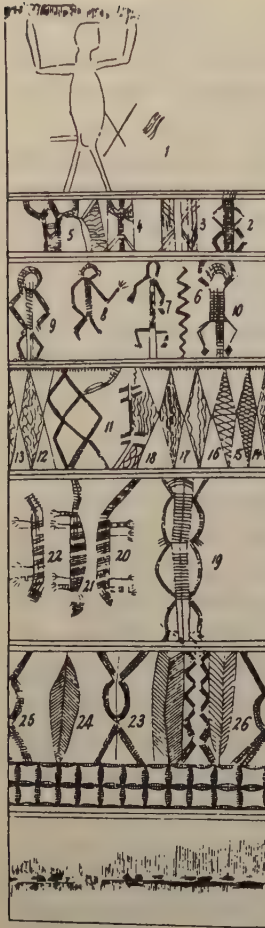 1
5 4 3 2
9 8 7 6 10
13 12 11 18 17 16 15 14
22 21 20 19
25 24 23 26